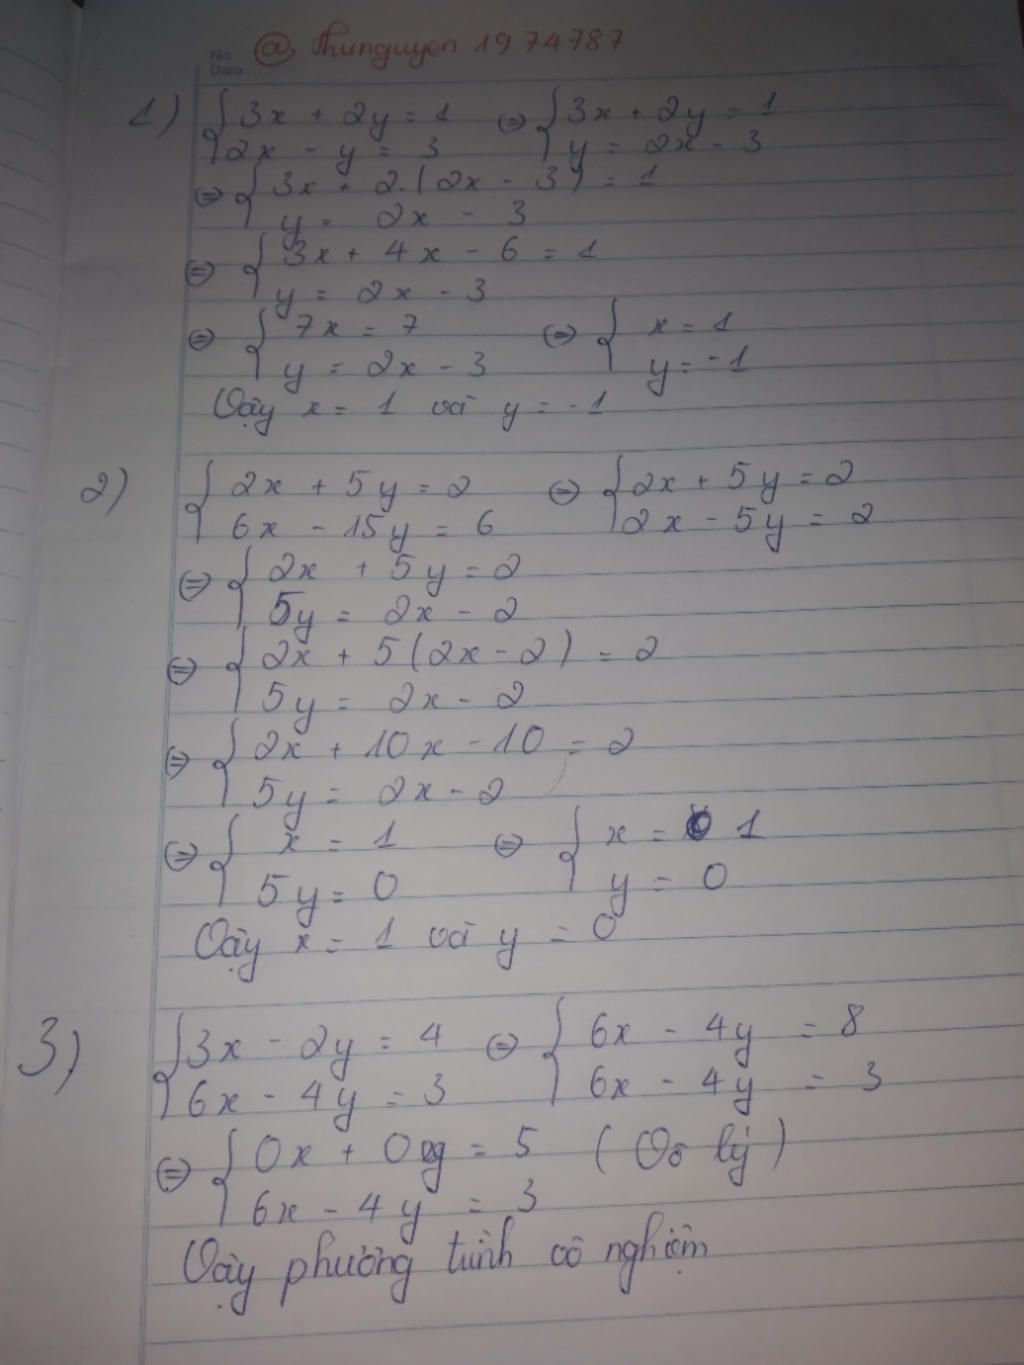 No.
Date
@ thunguyen 1974787
1) { 3x + 2y = 1 ⇔ { 3x + 2y = 1
2x - y = 3 y = 2x - 3
⇔ { 3x + 2.(2x - 3) = 1
y = 2x - 3
⇔ { 3x + 4x - 6 = 1
y = 2x - 3
⇔ { 7x = 7 ⇔ { x = 1
y = 2x - 3 y = -1
Vậy x = 1 và y = -1
2) { 2x + 5y = 2 ⇔ { 2x + 5y = 2
6x - 15y = 6 2x - 5y = 2
⇔ { 2x + 5y = 2
5y = 2x - 2
⇔ { 2x + 5(2x - 2) = 2
5y = 2x - 2
⇔ { 2x + 10x - 10 = 2
5y = 2x - 2
⇔ { x = 1 ⇔ { x = 1
5y = 0 y = 0
Vậy x = 1 và y = 0
3) { 3x - 2y = 4 ⇔ { 6x - 4y = 8
6x - 4y = 3 6x - 4y = 3
⇔ { 0x + 0y = 5 (Vô lý)
6x - 4y = 3
Vậy phương trình vô nghiệm